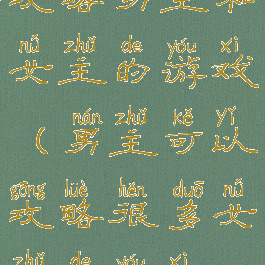 nǚ zhǔ de yóu xì
女主的游戏
nán zhǔ kě yǐ
（男主可以
gōng lüè hěn duō nǚ
攻略很多女
zhǔ de yóu xì